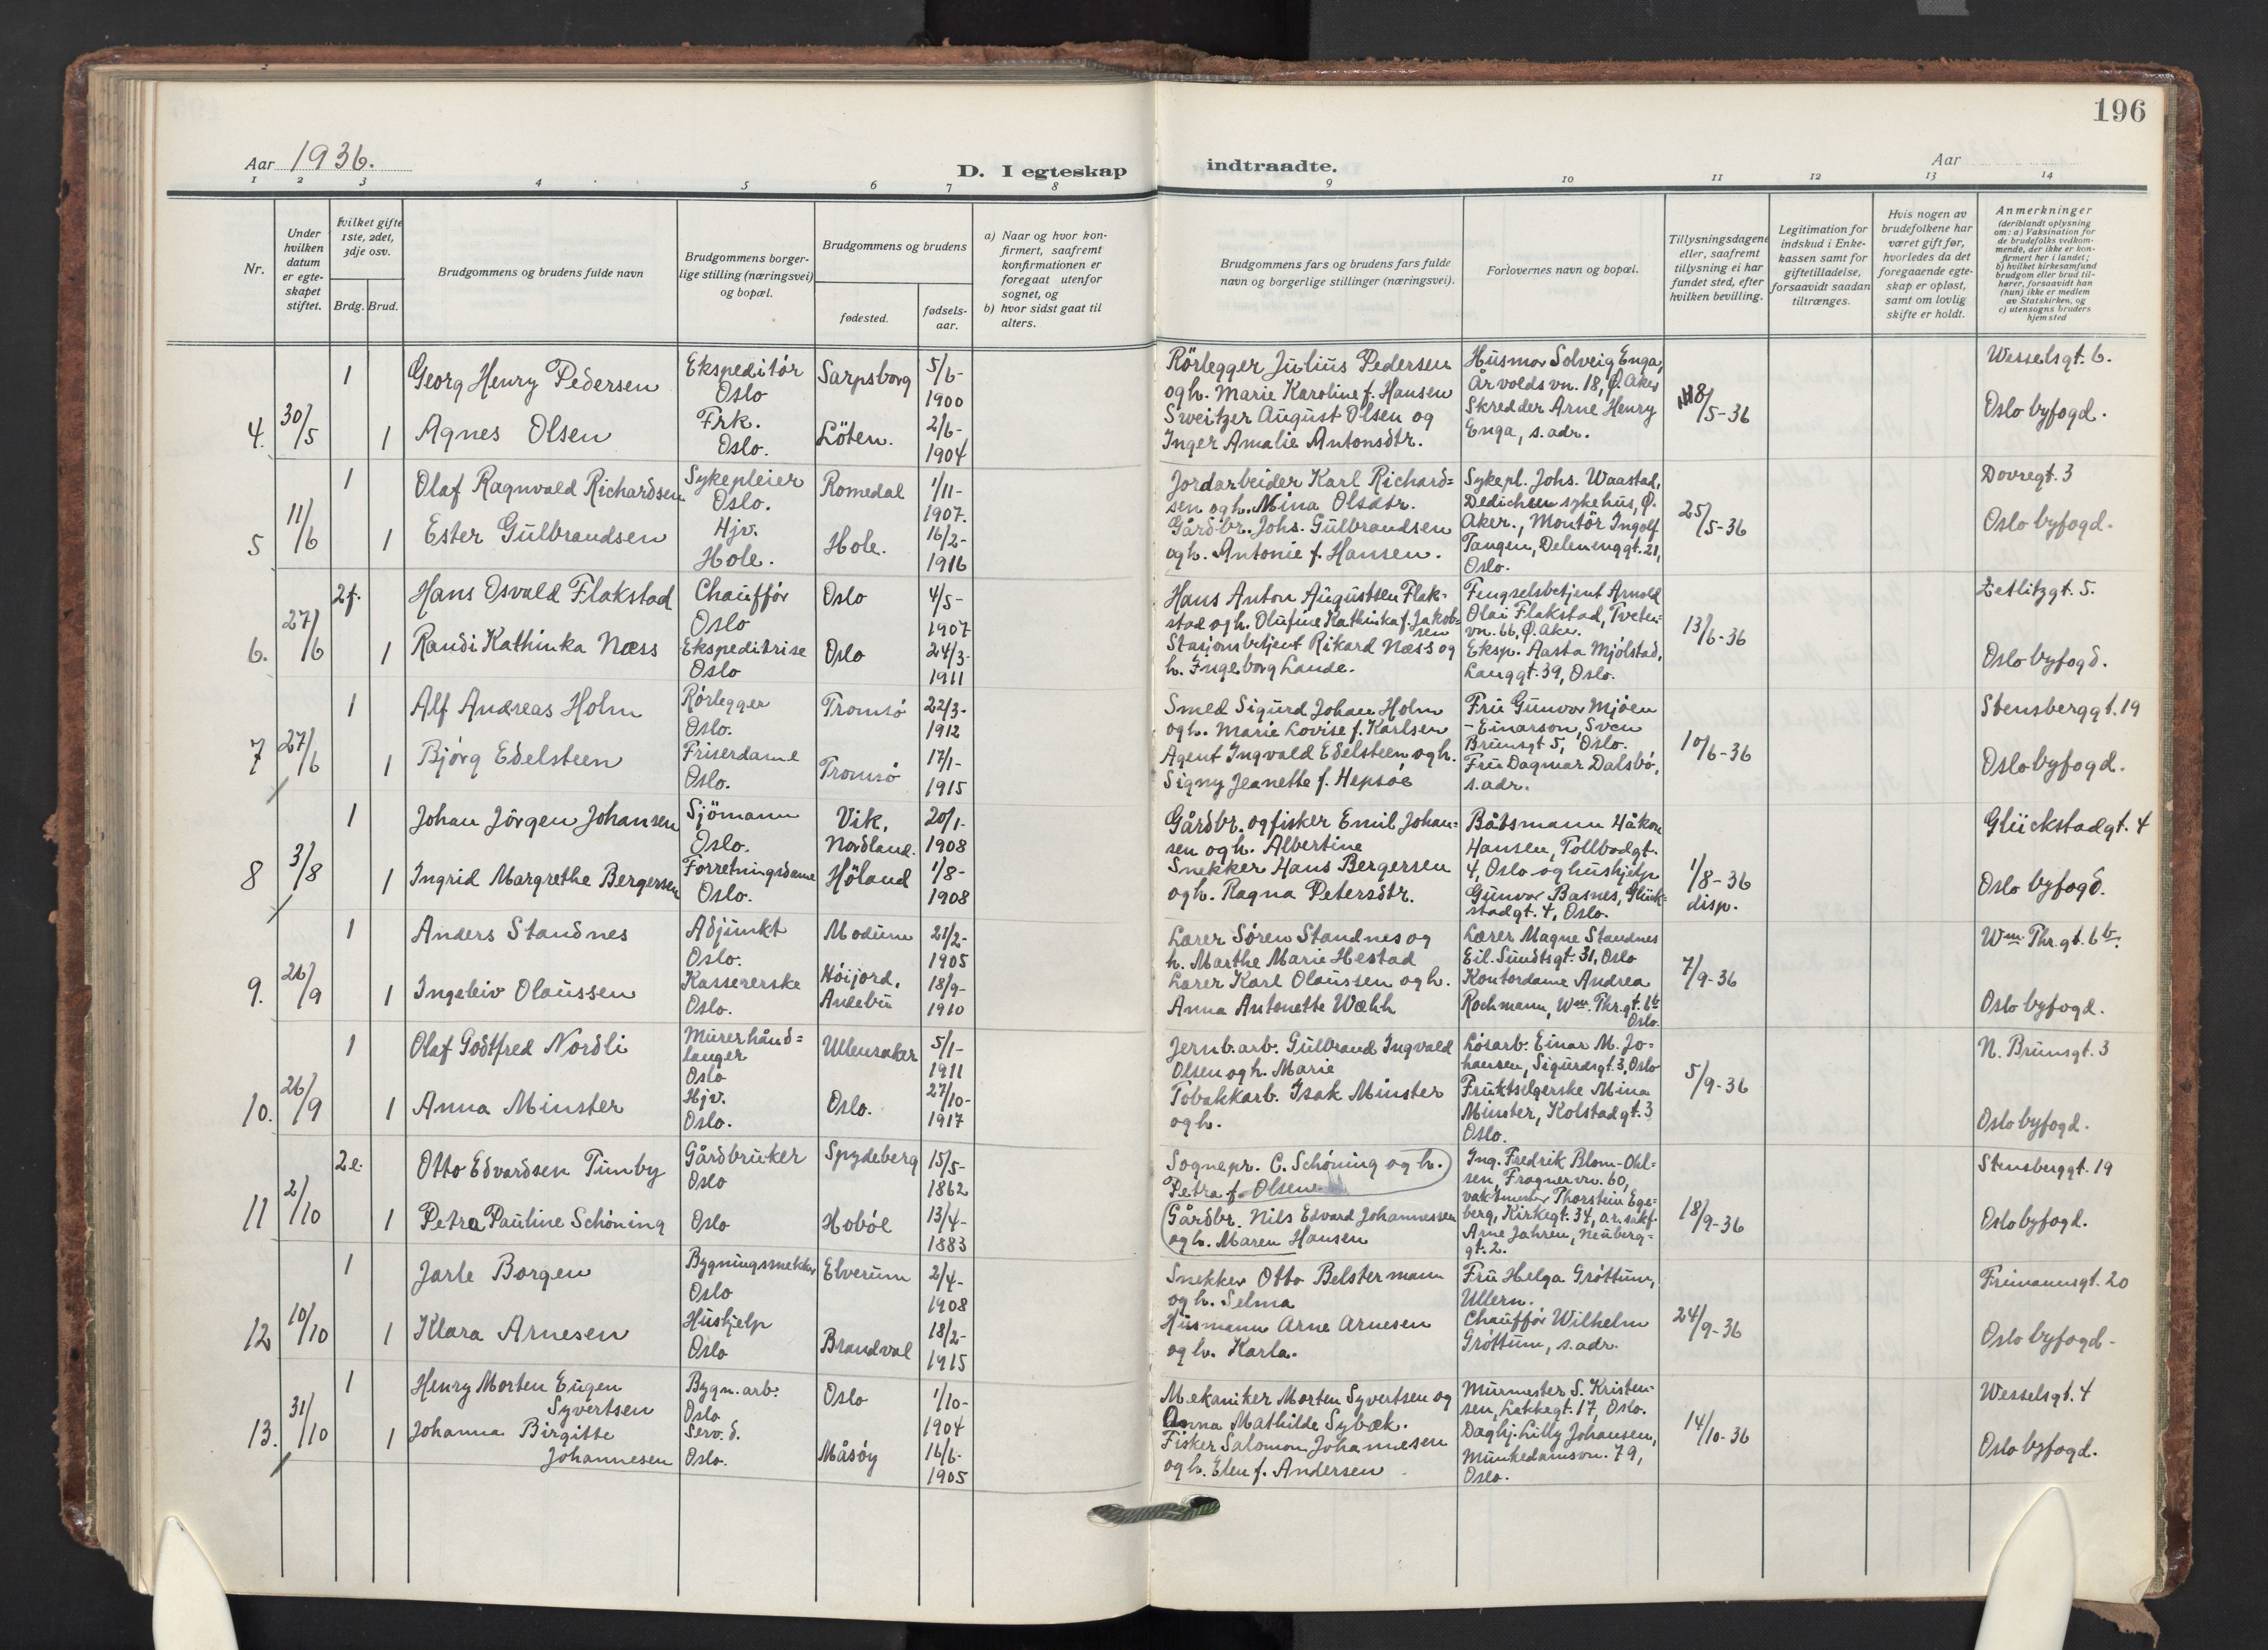 196
Aar 1936.
D. I egteskap indtraadte.
Aar
1 2 3 4 5 6 7 8 9 10 11 12 13 14
Nr.
Under hvilken datum er egteskapet stiftet.
Hvilket gifte 1ste, 2det, 3dje osv.
Brdg. Brud.
Brudgommens og brudens fulde navn
Brudgommens borgerlige stilling (næringsvei) og bopæl.
Brudgommens og brudens
fødested.
fødselsaar.
a) Naar og hvor konfirmert, saafremt konfirmationen er foregaat utenfor sognet, og
b) hvor sidst gaat til alters.
Brudgommens fars og brudens fars fulde navn og borgerlige stillinger (næringsvei).
Forlovernes navn og bopæl.
Tillysningsdagene eller, saafremt tillysning ei har fundet sted, efter hvilken bevilling.
Legitimation for indskud i Enkekassen samt for giftetilladelse, forsaavidt saadan tiltrænges.
Hvis nogen av brudefolkene har været gift før, hvorledes da det foregaaende egteskap er opløst, samt om lovlig skifte er holdt.
Anmerkninger
(deriblandt oplysning om: a) Vaksination for de brudefolks vedkommende, der ikke er konfirmert her i landet; b) hvilket kirkesamfund brudgom eller brud tilhører, forsaavidt han (hun) ikke er medlem av Statskirken, og c) utensogns bruders hjemsted
4. 30/5
1 Georg Henry Pedersen
Ekspeditör
Oslo
Sarpsborg
5/6-
1900
1 Agnes Olsen
Frk.
Oslo.
Löten.
2/6-
1904
Rörlegger Julius Pedersen
og h. Marie Karoline f. Hansen
Sveitzer August Olsen og
Inger Amalie Antonsdtr.
Husmor Solveig Enga,
Årvolds vn. 18, Ø. Aker
Skredder Arne Henry
Enga, s. adr.
18/5-36
Wesselsgt. 6.
Oslo byfogd.
5 11/6
1 Olaf Ragnvald Richardsen
Sykepleier
Oslo.
Romedal
1/11-
1907.
1 Ester Gulbrandsen
Hjv.
Hole.
Hole.
16/2-
1916
Jordarbeider Karl Richard=
sen og h. Mina Olsdtr.
Gårdbr. Johs. Gulbrandsen
og h. Antonie f. Hansen.
Sykepl. Johs. Waastad,
Dedichen sykehus, Ø.
Aker., Montör Ingolf
Tangen, Delenenggt. 21,
Oslo.
25/5-36
Dovregt. 3
Oslo byfogd.
6. 27/6
2f. Hans Osvald Flakstad
Chauffór
Oslo
Oslo
4/5-
1907
1 Randi Kathinka Næss
Ekspeditrise
Oslo
Oslo
24/3-
1911
Hans Anton Augustsen Flak-
stad og h. Olufine Kathinka f. Jakob=
sen
Stasjonsbetjent Rikard Næss og
h. Ingeborg Lande.
Fengselsbetjent Arnold
Olai Flakstad, Tveten-
vn. 66, Ø. Aker.
Eksp. Aasta Mjólstad,
Langgt. 39, Oslo.
13/6-36
Zetlitzgt. 5.
Oslo byfogd.
7 27/6
1 Alf Andreas Holm
Rórlegger
Oslo.
Tromsó
22/3-
1912
1 Bjórg Edelsteen
Friserdame
Oslo.
Tromsó
17/1-
1915
Smed Sigurd Johan Holm
og h. Marie Lovise f. Karlsen
Agent Ingvald Edelsteen og h.
Signy Jeanette f. Hepsóe
Fru Gunvor Mjóen
- Einarson, Sven
Brunsgt 5, Oslo.
Fru Dagmar Dalsbó,
s. adr.
10/6-36
Stensberggt. 19
Oslo byfogd.
8 3/8
1 Johan Jörgen Johansen
Sjömann
Oslo.
Vik,
Nordland.
20/1-
1908
1 Ingrid Margrethe Bergersen
Forretningsdame
Oslo.
Höland
1/8-
1908
Gårdbr. og fisker Emil Johan=
sen og h. Albertine
Snekker Hans Bergersen
og h. Ragna Petersdtr.
Båtsmann Håkon
Hansen, Tollbodgt.
4, Oslo og hushjelp
Gunvor Basnes, Glück=
stadgt. 4, Oslo.
1/8-36
disp.
Glückstadgt. 4
Oslo byfogd.
9. 26/9
1 Anders Standnes
Adjunkt
Oslo.
Modum
21/2-
1905
1 Ingeleiv Olaussen
Kassererske
Oslo.
Hóijord,
Andebu
18/9-
1910
Lærer Sóren Standnes og
h. Marthe Marie Hestad
Lærer Karl Olaussen og h.
Anna Antonette Wæhh
Lærer Magne Standnes
Eil. Sundtsgt. 31, Oslo
Kontordame Andrea
Rochmann, Wm. Thr. gt. 6b
Oslo.
7/9-36
Wm. Thr. gt. 6b.
Oslo byfogd.
10. 26/9
1 Olaf Godtfred Nordli
Murerhånd=
langer
Oslo
Ullensaker
5/1-
1911
1 Anna Minster
Hjv.
Oslo.
Oslo.
27/10-
1917
Jernb. arb. Gulbrand Ingvald
Olsen og h. Marie
Tobakkarb. Isak Minster
og h.
Lósarb. Einar M. Jo-
hansen, Sigurdsgt. 3, Oslo
Fruktselgerske Mina
Minster, Kolstadgt. 3
Oslo.
5/9-36
N. Brunsgt. 3
Oslo byfogd.
11 2/10
2e. Otto Edvardsen Tunby
Gårdbruker
Oslo
Spydeberg
15/5-
1862
1 Petra Pauline Schóning
Oslo
Hoból
13/4-
1883
Sognepr. C. Schóning og h.
Petra f. Olsen
Gårdbr. Nils Edvard Johannessen
og h. Maren Hansen
Ing. Fredrik Blom-Ohl=
sen, Frognervn. 60,
vaktmester Thorstein Ege=
berg, Kirkegt. 34, o.r. sakf.
Arne Jahren, Neuberg=
gt. 2.
18/9-36
Stensberggt. 19
Oslo byfogd.
12 10/10
1 Jarle Borgen
Bygningssnekker
Oslo
Elverum
2/4-
1908
1 Klara Arnesen
Hushjelp
Oslo
Brandval
18/2-
1915
Snekker Otto Belstermann
og h. Selma
Husmann Arne Arnesen
og h. Karla.
Fru Helga Gróttum,
Ullern.
Chauffór Wilhelm
Gróttum, s. adr.
24/9-36
Frimannsgt. 20
Oslo byfogd-
13. 31/10
1 Henry Morten Eugen
Syvertsen
Bygn. arb.
Oslo
Oslo
1/10-
1904
1 Johanna Birgitte
Johannesen
Serv. d.
Oslo.
Måsóy
16/6-
1905
Mekaniker Morten Syvertsen og
Anna Mathilde Sybæk.
Fisker Salomon Johannesen
og h. Elen f. Andersen
Murmester S. Kristen-
sen, Lakkegt. 17, Oslo.
Daghj. Lilly Johansen,
Munkedamsvn. 79,
Oslo.
14/10-36
Wesselsgt. 4
Oslo byfogd.